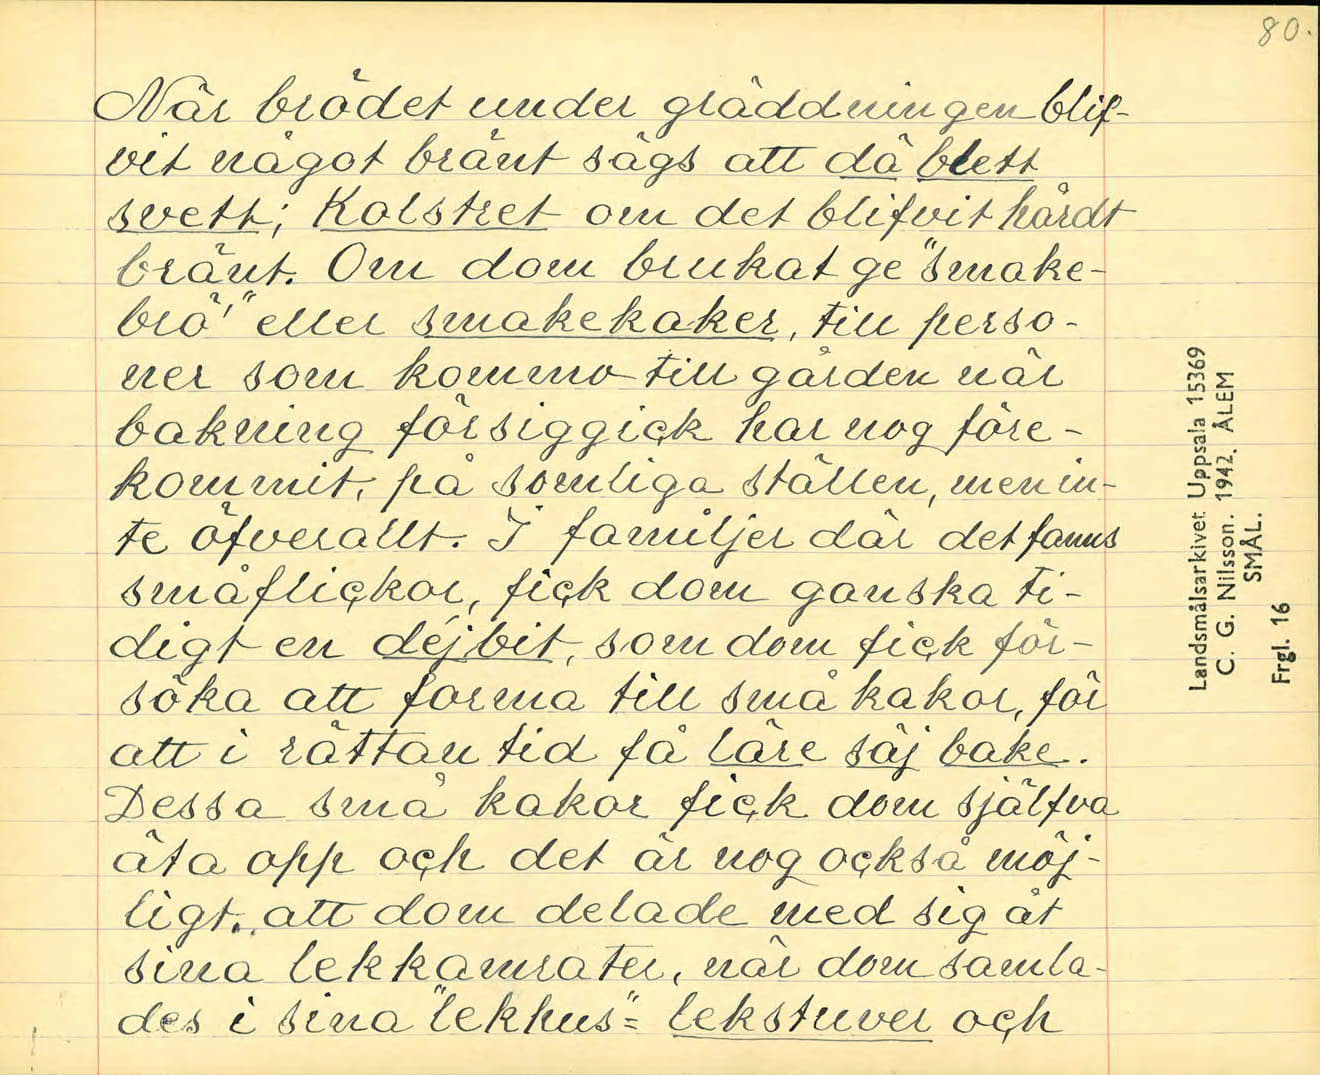 80.
När brödet under gräddningen blif-
vit något bränt sägs att dä blett
svett; Kolstret om det blifvit hårdt
bränt. Om dom brukat ge "smake-
brö'" eller smakekaker, till perso-
ner som kommo till gården när
bakning försiggick har nog före-
kommit, på somliga ställen, men in-
te öfverallt. I familjer där det fanns
småflickor, fick dom ganska ti-
digt en dejbit, som dom fick för-
söka att forma till små kakor, för
att i rättan tid få läre säj bake.
Dessa små kakor fick dom själfva
äta opp och det är nog också möj-
ligt, att dom delade med sig åt
sina lekkamrater, när dom samla-
des i sina "lekhus" = lekstuver och
Landsmålsarkivet Uppsala 15369
C. G. Nilsson. 1942. ÅLEM
SMÅL.
Frgl. 16